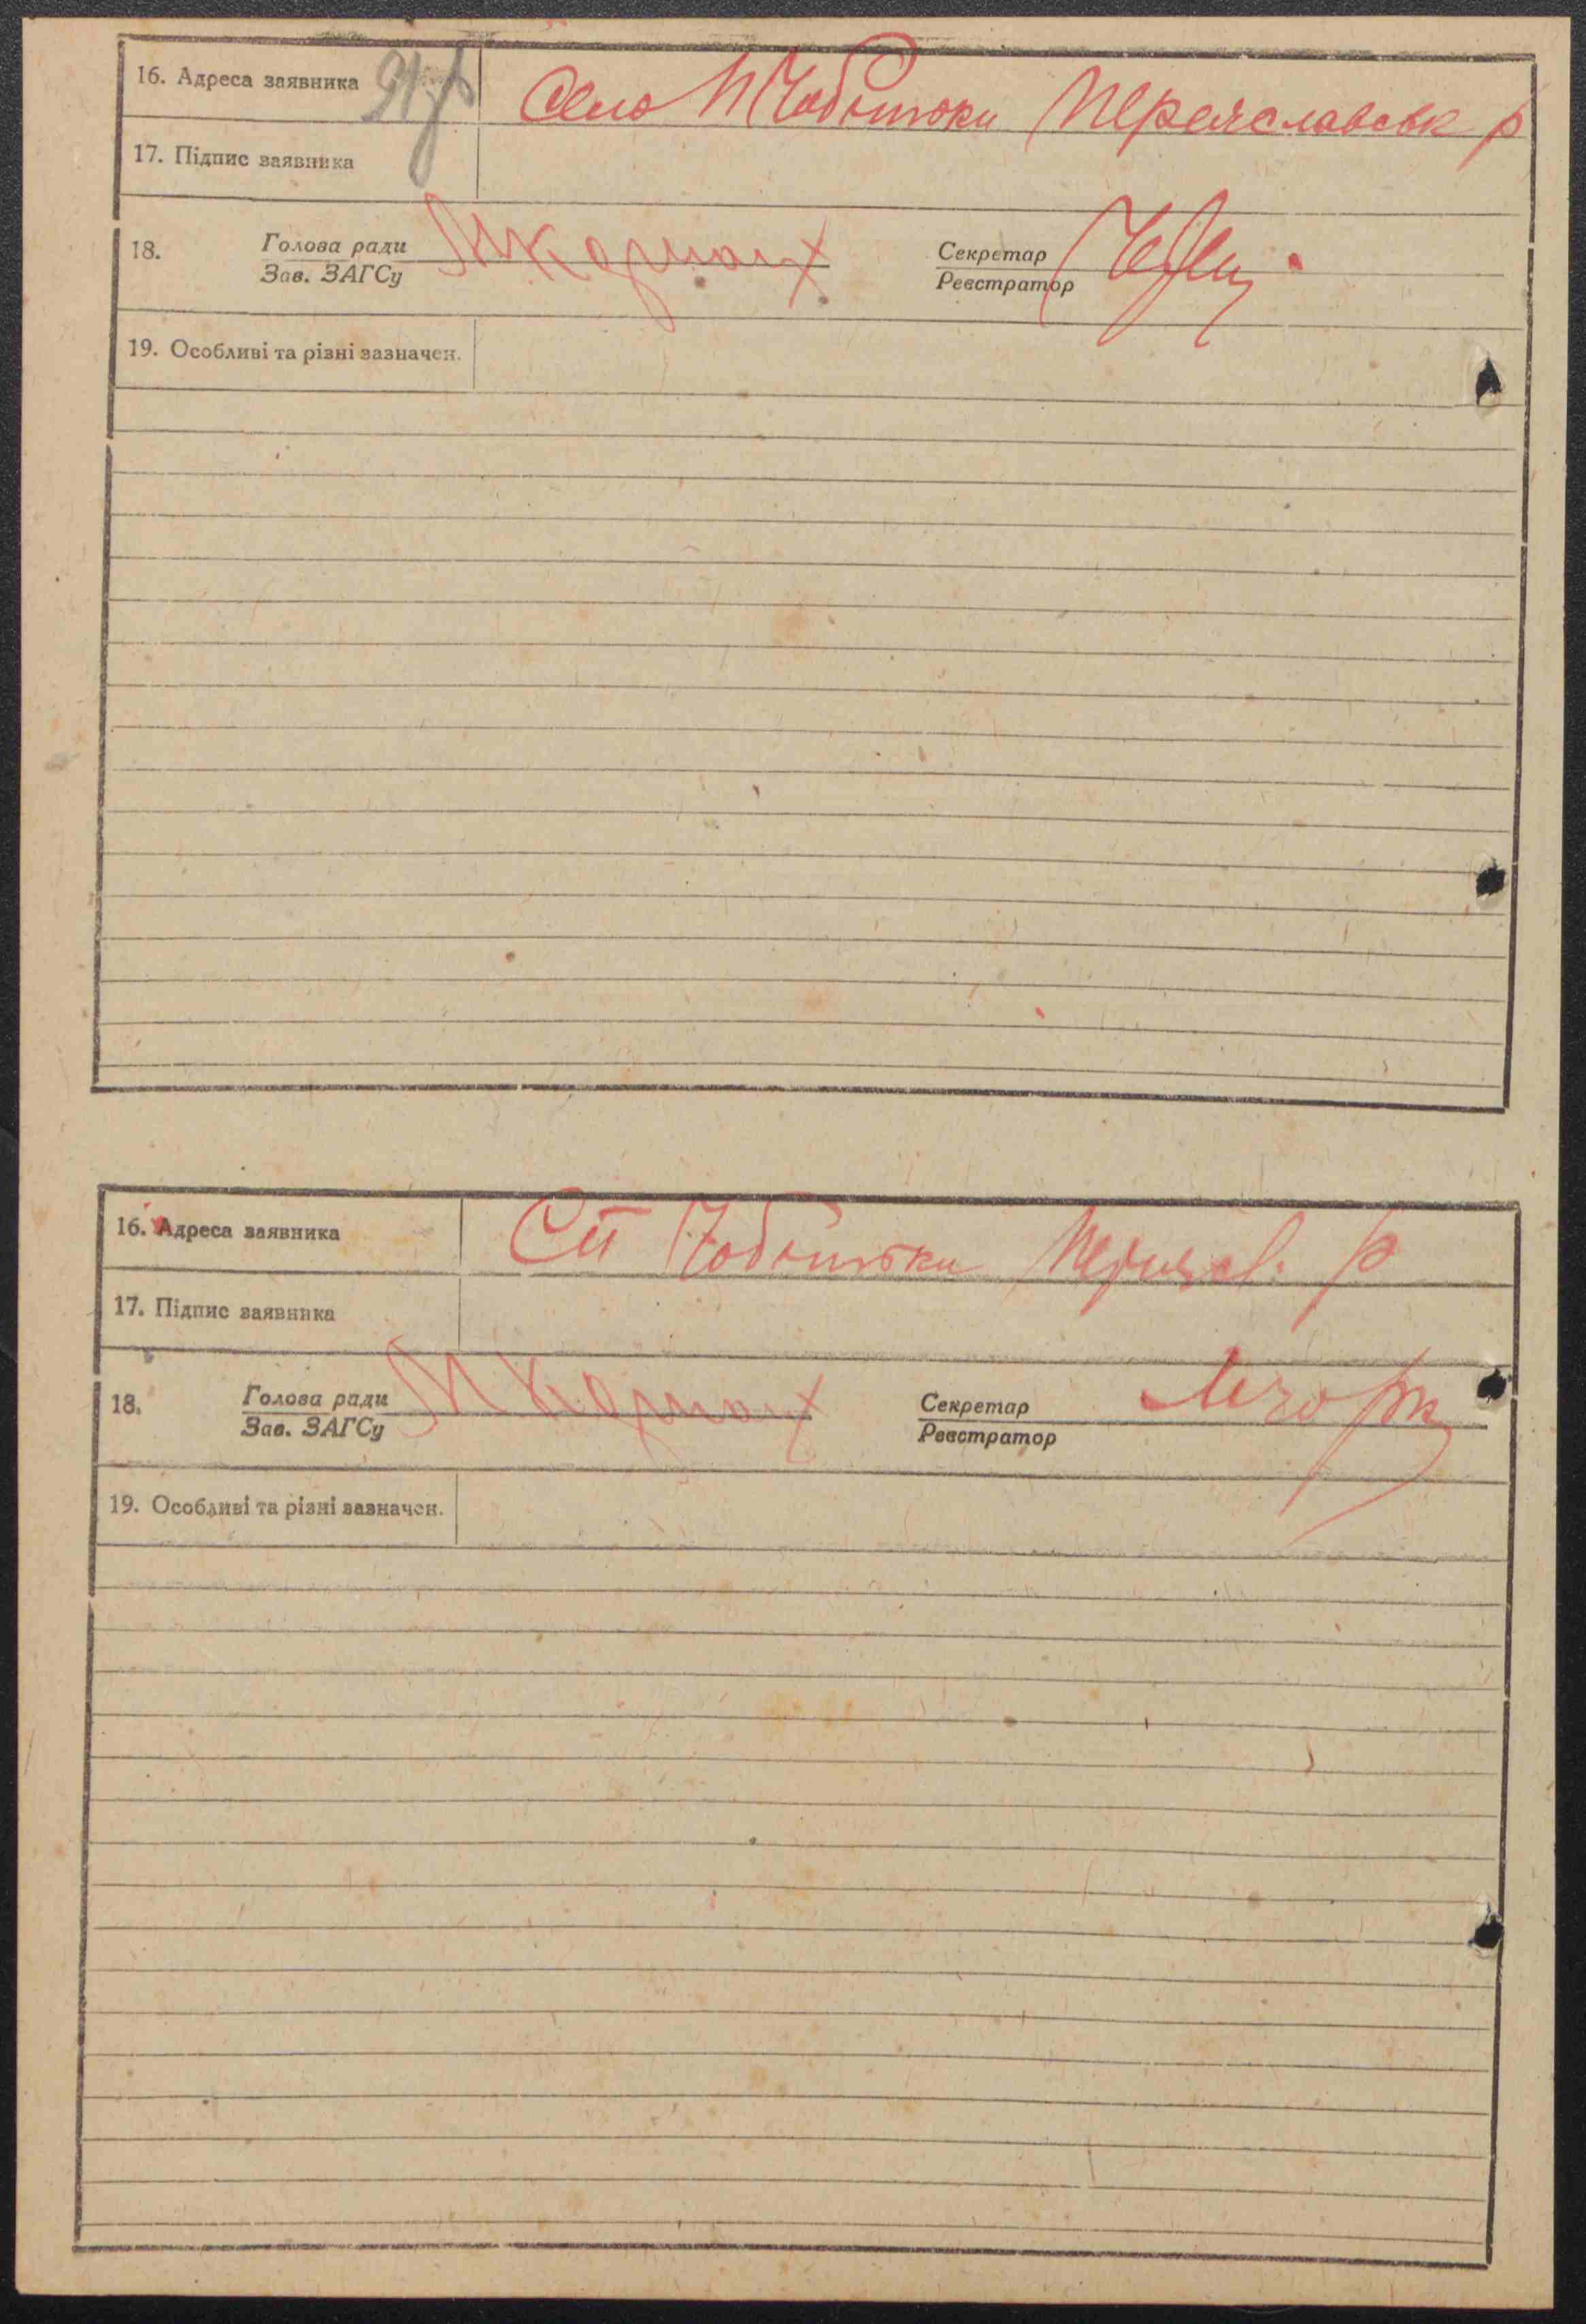 16. Адреса заявника Село П Чобітьки Переяславськ р
17. Підпис заявника
18. Голова ради Секретар
Зав. ЗАГСу Реєстратор
19. Особливі та різні зазначен.
16. Адреса заявника СП Чобітьки р
17. Підпис заявника
18. Голова ради Секретар
Зав. ЗАГСу Реєстратор
19. Особливі та різні зазначен.